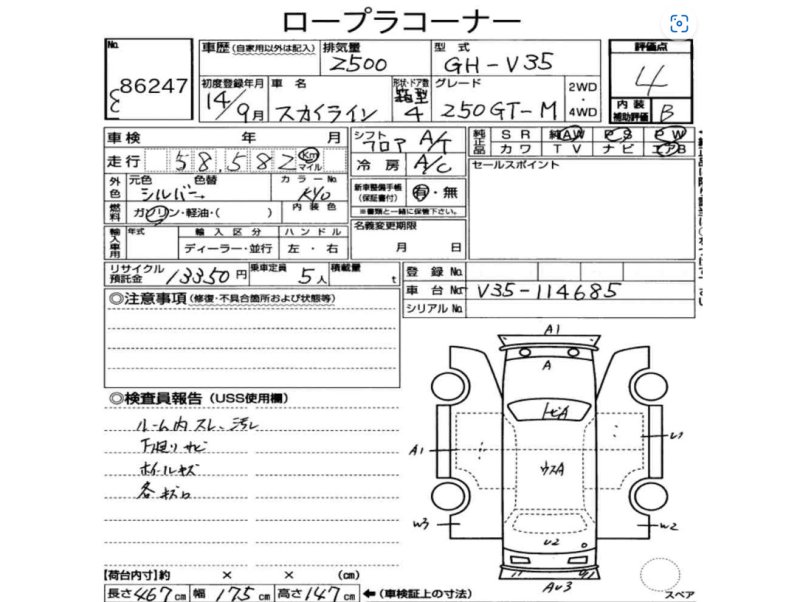 ロープラコーナー
No.
86247
車歴（自家用以外は記入）
排気量
2500
型式
GH-V35
評価点
4
初度登録年月
14/9月
車名
スカイライン
形状・ドア数
箱型
4
グレード
250GT-M
2WD
・
4WD
内装
補助評価
B
車検 年 月
シフト
フロア A/T
純正品
SR 純AW PS PW
カワ TV ナビ エアB
走行 58,582 Km
マイル
冷房 A/C
セールスポイント
外色
元色 色替
シルバー
カラーNo.
KY0
新車整備手帳
（保証書付）
有・無
※書類と一緒に保管下さい。
燃料
ガソリン・軽油・( )
内装色
名義変更期限
月 日
輸入車用
年式
輸入区分
ディーラー・並行
ハンドル
左・右
リサイクル
預託金
13350円
乗車定員
5人
積載量
t
登録No.
車台No.
V35-114685
シリアルNo.
◎注意事項（修復・不具合箇所および状態等）
◎検査員報告（USS使用欄）
ルーム内スレ、汚レ
下廻りサビ
ホイールキズ
各キズロ
A1
A
トビA
A1
U1
ウスA
W3
W2
U2
AU3
スペア
【荷台内寸】約 × × (cm)
長さ467cm 幅175cm 高さ147cm ←（車検証上の寸法）